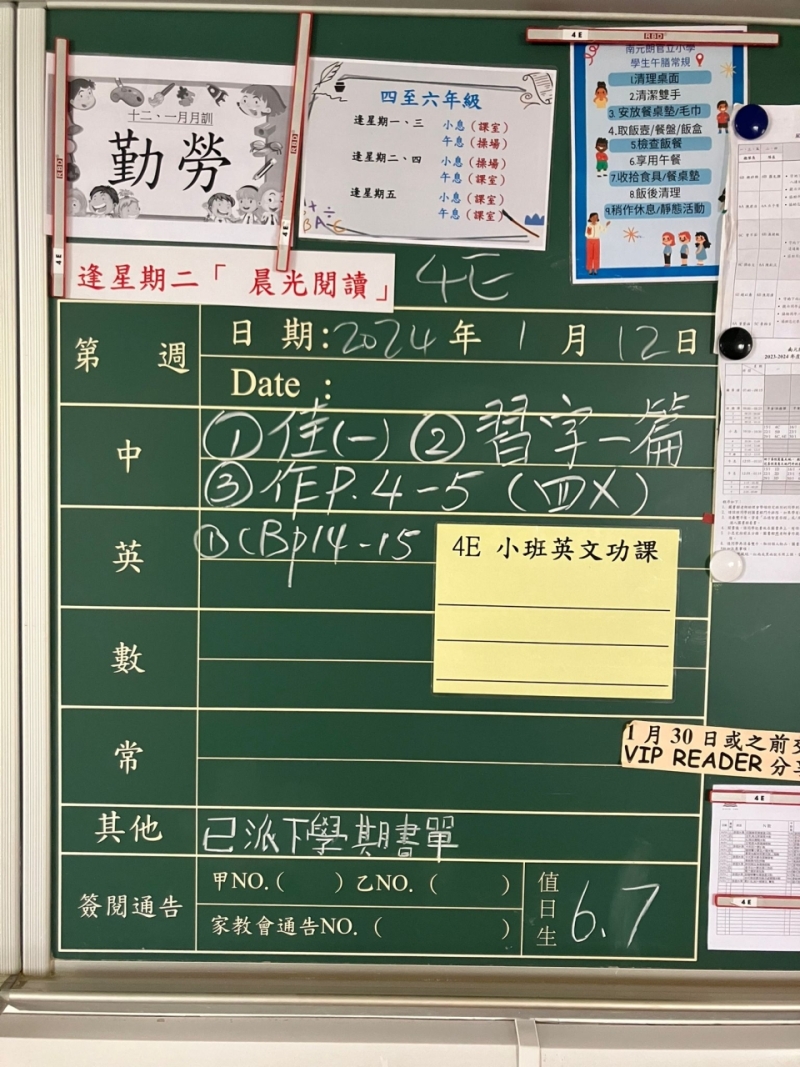 十二、一月月訓
勤勞
四至六年級
逢星期一、三 小息（課室）
午息（操場）
逢星期二、四 小息（操場）
午息（課室）
逢星期五 小息（課室）
午息（課室）
4E
南元朗官立小學
學生午膳常規
1.清理桌面
2.清潔雙手
3.安放餐桌墊/毛巾
4.取飯壺/餐盤/飯盒
5.檢查飯餐
6.享用午餐
7.收拾食具/餐桌墊
8.飯後清理
9.稍作休息/靜態活動
逢星期二「 晨光閱讀」
4E
第 週
日期:2024年1月12日
Date :
中
①佳(一) ②習字一篇
③作P.4-5 (四X)
英
①CBp14-15
4E 小班英文功課
數
常
1月30日或之前
VIP READER 分享
其他
已派下學期書單
簽閱通告
甲NO.( ) 乙NO. ( )
家教會通告NO. ( )
值日生
6.7
4E
4E